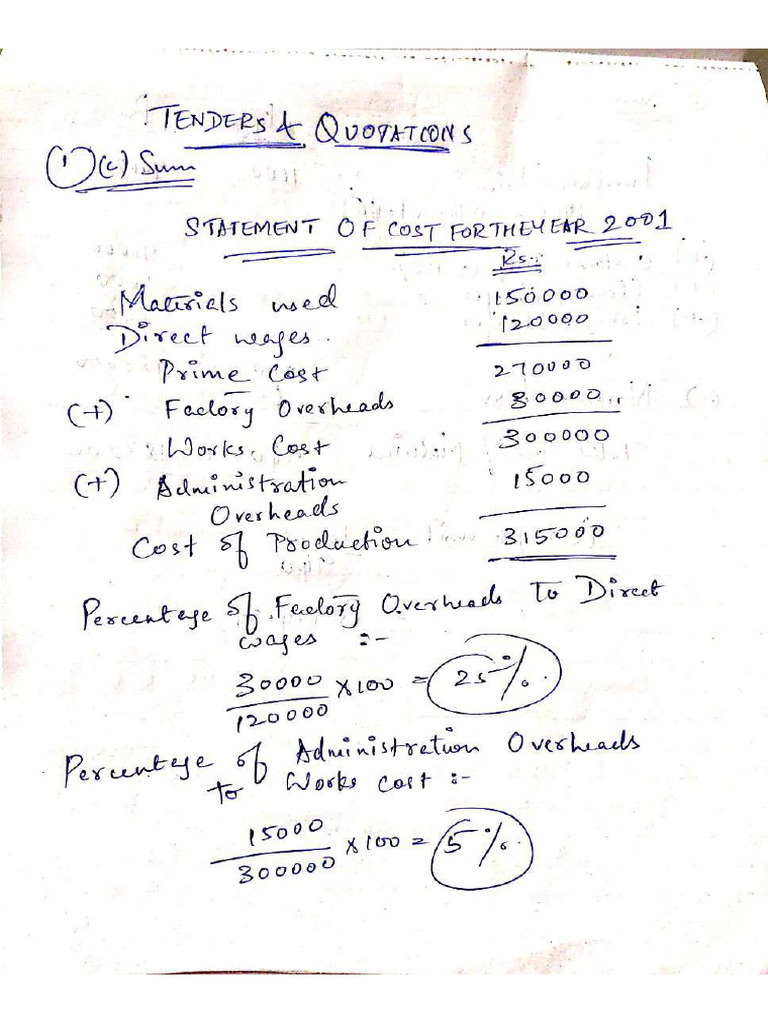 TENDERS & QUOTATIONS
(1) (c) Sum
STATEMENT OF COST FOR THE YEAR 2001
Rs.:
Materials used 150000
Direct wages. 120000
Prime Cost 270000
(+) Factory Overheads 30000
Works Cost 300000
(+) Administration 15000
Overheads
Cost of Production 315000
Percentage of Factory Overheads To Direct
wages :-
30000
/120000 × 100 = 25%.
Percentage of Administration Overheads
To Works cost :-
15000
/300000 × 100 = 5%.